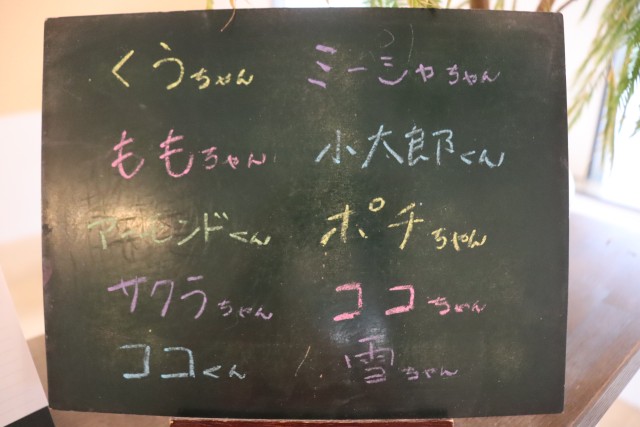 くうちゃん ミーシャちゃん
ももちゃん 小太郎くん
くん ポチちゃん
サクラちゃん ココちゃん
ココくん 雪ちゃん